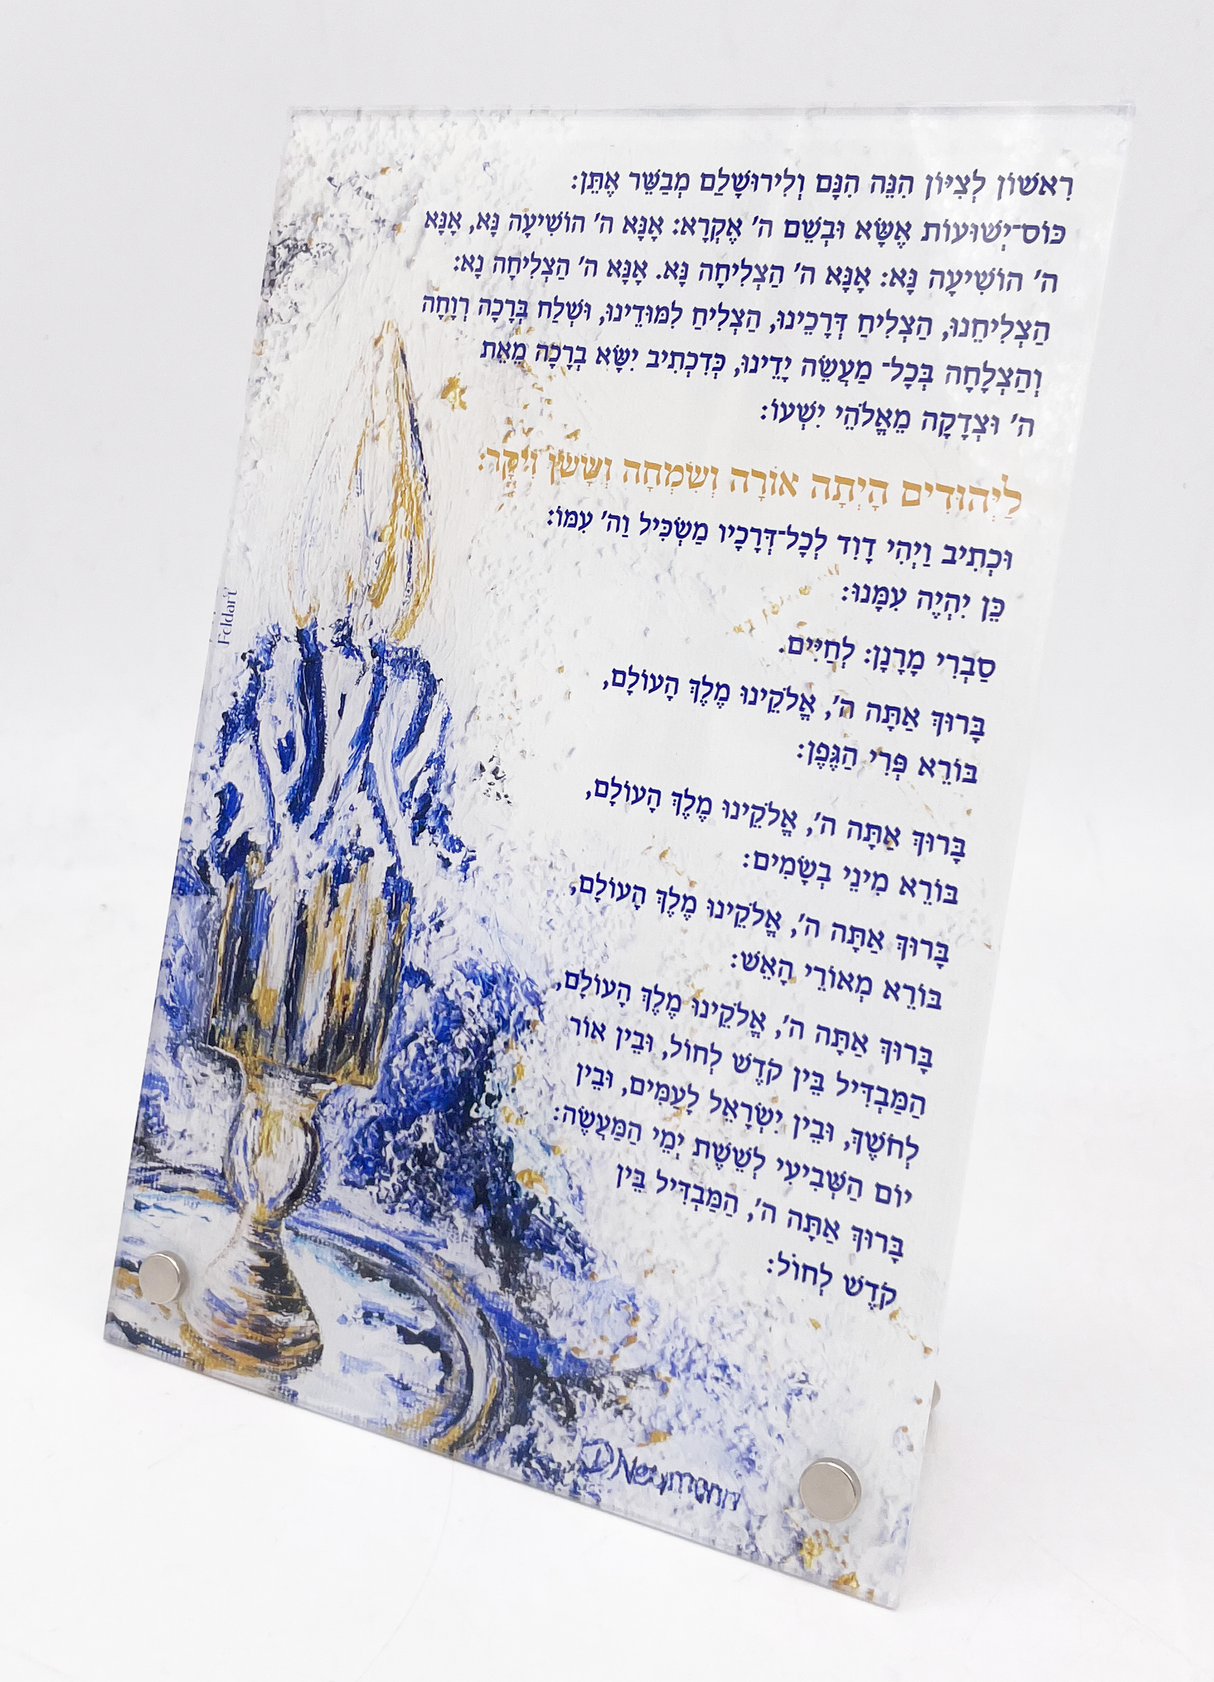 רִאשׁוֹן לְצִיּוֹן הִנֵּה הִנָּם וְלִירוּשָׁלַם מְבַשֵּׂר אֶתֵּן:
כּוֹס־יְשׁוּעוֹת אֶשָּׂא וּבְשֵׁם ה' אֶקְרָא: אָנָּא ה' הוֹשִׁיעָה נָּא, אָנָּא
ה' הוֹשִׁיעָה נָּא: אָנָּא ה' הַצְלִיחָה נָּא. אָנָּא ה' הַצְלִיחָה נָא:
הַצְלִיחֵנוּ, הַצְלִיחַ דְּרָכֵינוּ, הַצְלִיחַ לִמּוּדֵינוּ, וּשְׁלַח בְּרָכָה רְוָחָה
וְהַצְלָחָה בְּכָל־ מַעֲשֵׂה יָדֵינוּ, כְּדִכְתִיב יִשָּׂא בְרָכָה מֵאֵת
ה' וּצְדָקָה מֵאֱלֹהֵי יִשְׁעוֹ:
לַיְּהוּדִים הָיְתָה אוֹרָה וְשִׂמְחָה וְשָׂשׂן וִיקָר:
וּכְתִיב וַיְהִי דָוִד לְכָל־דְּרָכָיו מַשְׂכִּיל וַה' עִמּוֹ:
כֵּן יִהְיֶה עִמָּנוּ:
סַבְרִי מָרָנָן: לְחַיִּים.
בָּרוּךְ אַתָּה ה', אֱלֹקֵינוּ מֶלֶךְ הָעוֹלָם,
בּוֹרֵא פְּרִי הַגֶּפֶן:
בָּרוּךְ אַתָּה ה', אֱלֹקֵינוּ מֶלֶךְ הָעוֹלָם,
בּוֹרֵא מִינֵי בְשָׂמִים:
בָּרוּךְ אַתָּה ה', אֱלֹקֵינוּ מֶלֶךְ הָעוֹלָם,
בּוֹרֵא מְאוֹרֵי הָאֵשׁ:
בָּרוּךְ אַתָּה ה', אֱלֹקֵינוּ מֶלֶךְ הָעוֹלָם,
הַמַּבְדִּיל בֵּין קֹדֶשׁ לְחוֹל, וּבֵין אוֹר
לְחֹשֶׁךְ, וּבֵין יִשְׂרָאֵל לָעַמִּים, וּבֵין
יוֹם הַשְּׁבִיעִי לְשֵׁשֶׁת יְמֵי הַמַּעֲשֶׂה:
בָּרוּךְ אַתָּה ה', הַמַּבְדִּיל בֵּין
קֹדֶשׁ לְחוֹל:
Feldart
D Neymann